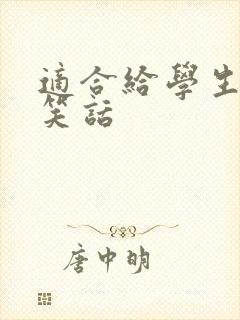 適合給學生
笑話
唐中明